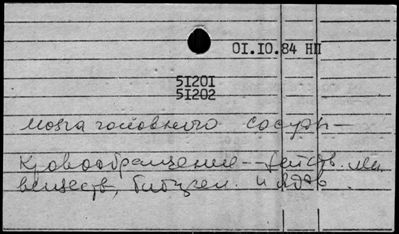 01.10.84 НП
51201
51202
мозга головного сосуды —
Кровообращение -- действ.
веществ, и ядов.